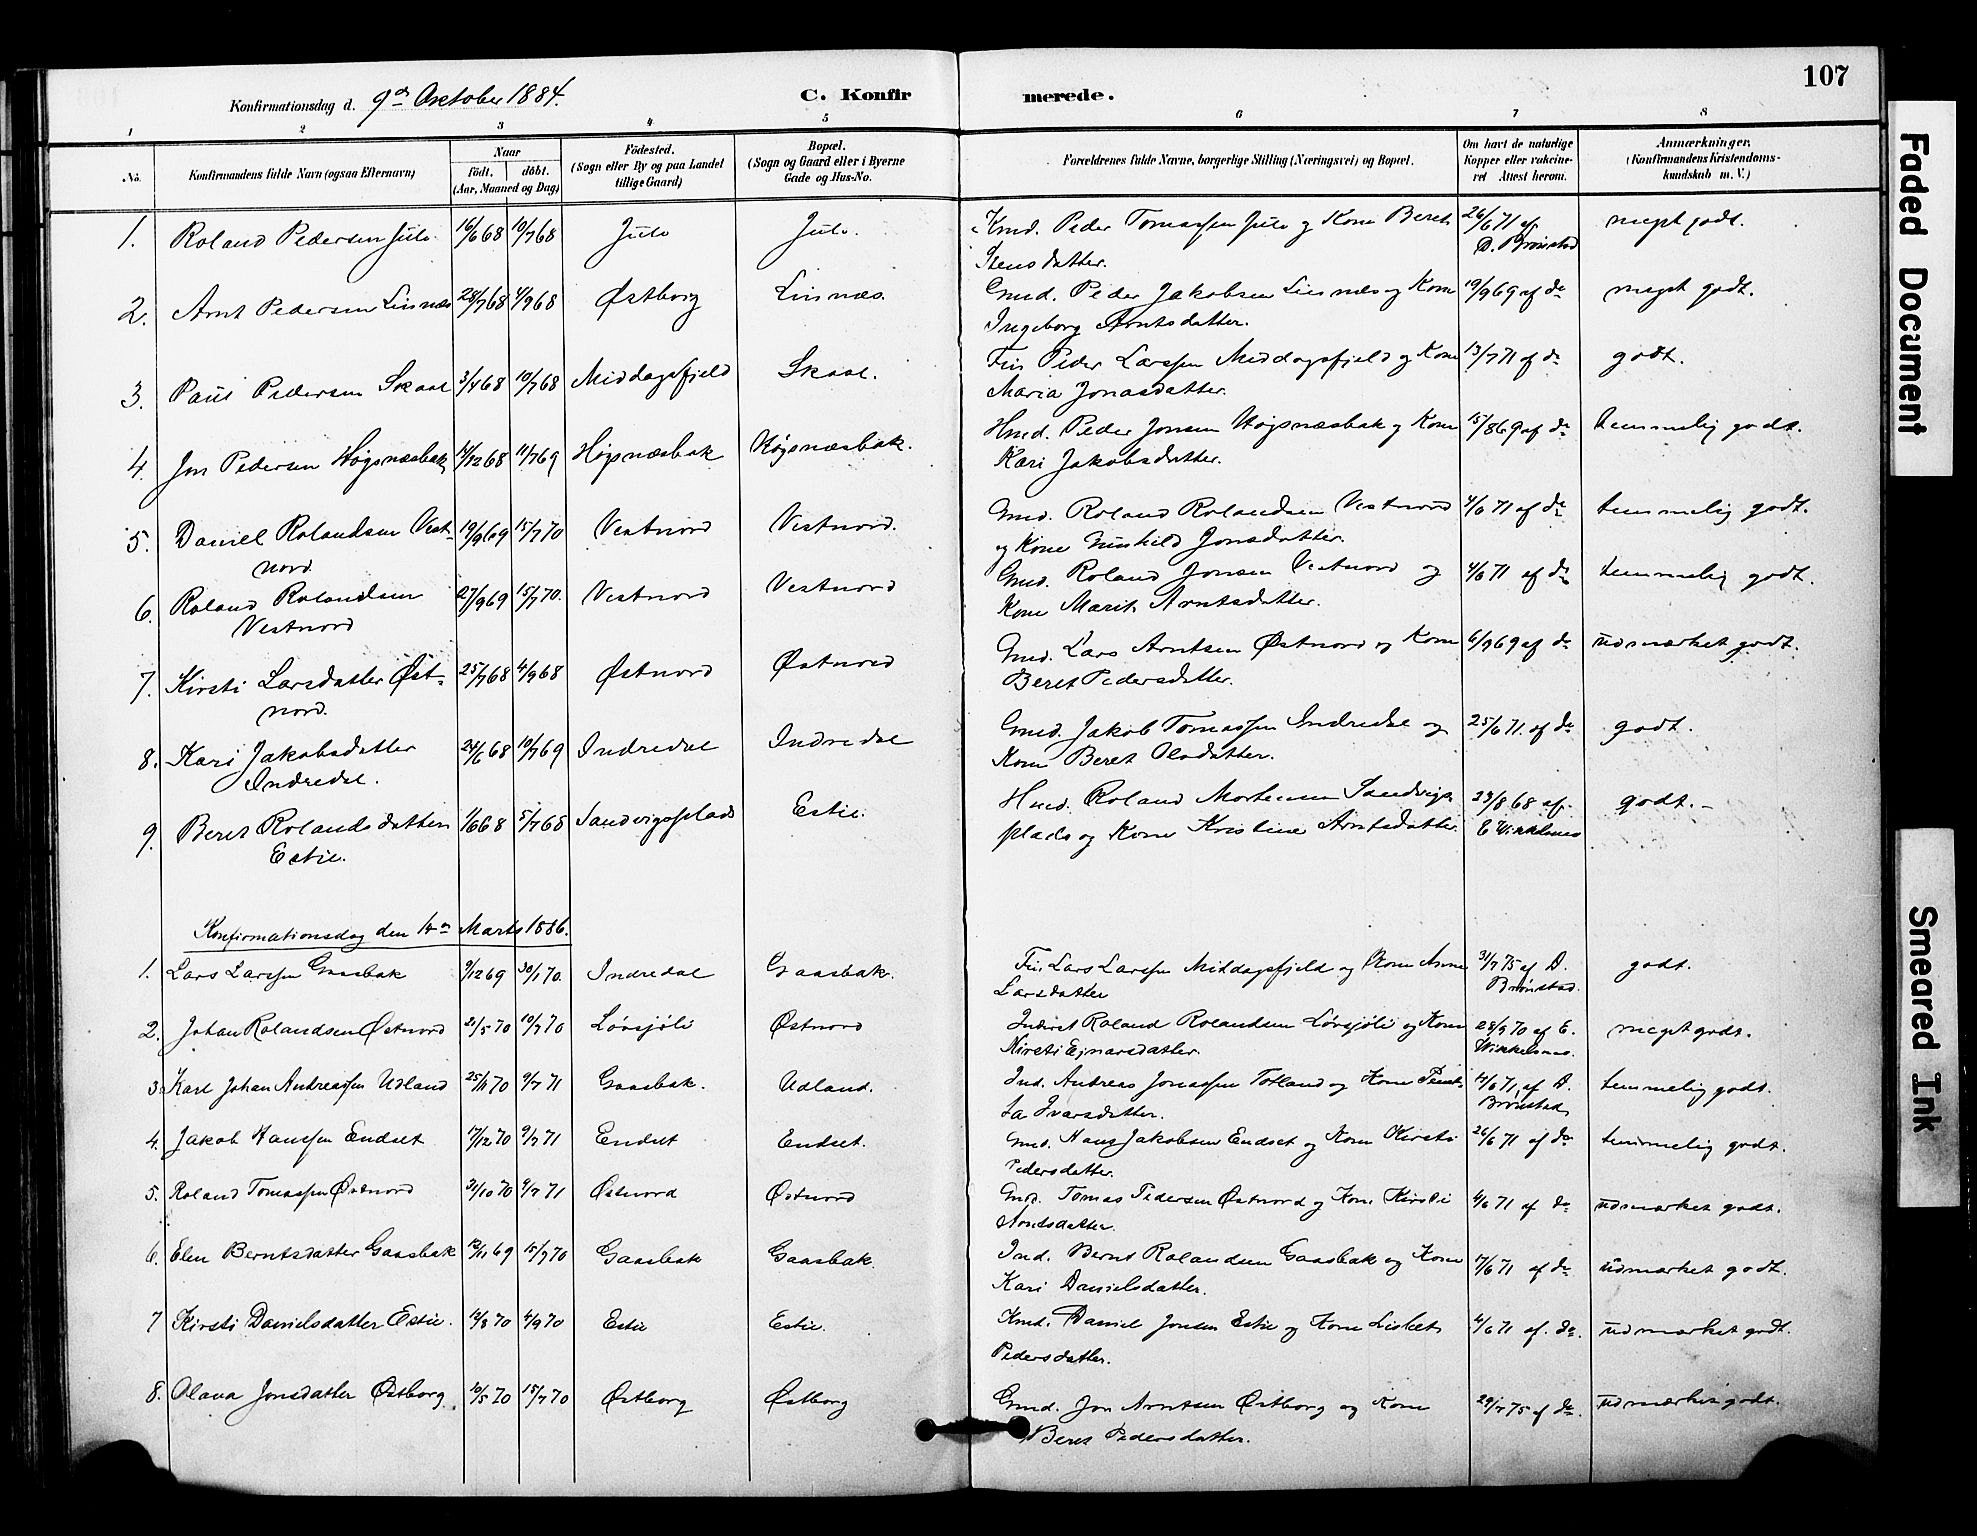 107
Konfirmationsdag d. 9de October 1884.
C. Konfir
merede.
1 2 3 4 5 6 7 8
No.
Konfirmandens fulde Navn (ogsaa Efternavn)
Naar
født. døbt.
(Aar, Maaned og Dag)
Fødested.
(Sogn eller By og paa Landet
tillige Gaard)
Bopæl.
(Sogn og Gaard eller i Byerne
Gade og Hus-No.
Forældrenes fulde Navne, borgerlige Stilling (Næringsvei) og Bopæl.
Om havt de naturlige
Kopper eller vakcine-
ret Attest herom.
Anmærkninger,
(Konfirmandens Kristendoms-
kundskab m. V.)
1. Roland Pedersen Jule 16/6 68 10/7 68 Jule Jule. Kmd. Peder Tomassen Jule og Kone Beret 26/6 71 af meget godt.
Stensdatter. D. Brønstad
2. Arnt Pedersen Lisnæs 28/7 68 4/9 68 Østborg Lisnæs Gmd. Peder Jakobsen Lisnæs og Kone 19/9 69 af do meget godt.
Ingeborg Arntsdatter.
3. Paul Pedersen Skaal 3/4 68 10/7 68 Middagsfjeld Skaal. Fin Peder Larssen Middagsfjeld og Kone 13/7 71 af do godt.
Maria Jonasdatter.
4. Jon Pedersen Høgsnæsbak 14/12 68 11/7 69 Høgsnæsbak Høgsnæsbak. Hmd. Peder Jonsen Høgsnæsbak og Kone 15/8 69 af do temmelig godt.
Kari Jakobsdatter.
5. Daniel Rolandsen Vest- 19/9 69 15/7 70 Vestnord Vestnord. Gmd. Roland Rolandsen Vestnord 4/6 71 af do temmelig godt.
nord. og Kone Gunhild Jonsdatter.
6. Roland Rolandsen 27/9 69 15/7 70. Vestnord Vestnord Gmd. Roland Jonsen Vestnord og 4/6 71 af do temmelig godt.
Vestnord Kone Marit Arntsdatter.
7. Kirsti Larsdatter Øst- 25/7 68 4/9 68 Østnord Østnord Gmd. Lars Arntsen Østnord og Kone 6/9 69 af do udmærket godt.
nord. Beret Pedersdatter.
8. Kari Jakobsdatter 24/6 68 10/7 69 Indredal Indredal Gmd. Jakob Tomassen Indredal og 25/6 71. af do godt.
Indredal. Kone Beret Olsdatter.
9. Beret Rolandsdatter 1/6 68 5/7 68 Sandvigsplads Estil. Hmd. Roland Mortensen Sandvigs 23/8 68 af godt.
Estil. plads og Kone Kristine Arntsdatter E Winkelmas
Konfirmationsdag den 14de Marts 1886.
1. Lars Larssen Gaasbak 9/12 69 30/1 70. Indredal Gaasbak. Fin Lars Larssen Middagsfjeld og Kone Anne 31/7 75 af D. godt.
Larsdatter Brønstad.
2. Johan Rolandsen Østnord 21/5 70 10/7 70 Løvsjøli Østnord Inderst Roland Rolandsen Løvsjøli og Kone 28/9 70 af E. meget godt.
Kirsti Ejnarsdatter. Winkelmas.
3. Karl Johan Andreassen Udland 25/11 70 9/7 71 Gaasbak. Udland. Ind. Andreas Jonassen Totland og Kone 4/6 71, af D. temmelig godt.
Ivarsdatter. Brønstad
4. Jakob Hanssen Endset 17/12 70 9/7 71 Endset Endset. Gmd. Hans Jakobsen Endset og Kone Kirsti 26/6 71 af do temmelig godt.
Pedersdatter.
5. Roland Tomassen Østnord 31/10 70 9/7 71 Østnord Østnord Gmd. Tomas Pedersen Østnord og Kone Kirsti 4/6 71 af do udmærket godt.
Arntsdatter.
6. Elen Berntsdatter Gaasbak 12/11 69 15/7 70 Gaasbak Gaasbak. Ind. Bernt Rolandsen Gaasbak og Kone 7/6 71 af do udmærket godt.
Kari Danielsdatter.
7 Kirsti Danielsdatter Estil. 12/8 70 4/9 70 Estil Estil. Kmd. Daniel Jonsen Estil og Kone Lisbet 4/6 71 af. do. udmærket godt.
Pedersdatter.
8. Olava Jonsdatter Østborg 10/5 70 15/7 70 Østborg Østborg Gmd. Jon Arntsen Østborg og Kone 29/7 75 af do. udmærket godt.
Beret Pedersdatter.
Faded Document
Smeared Ink